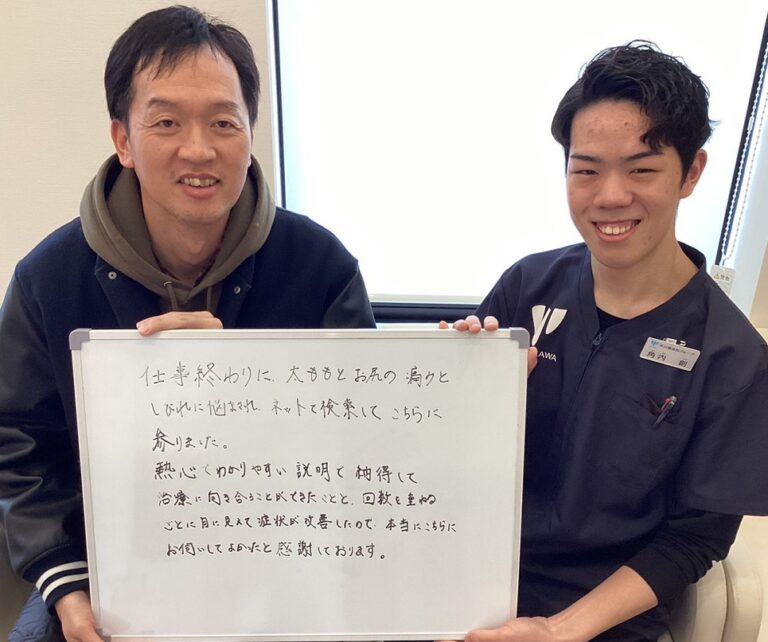 仕事終わりに、太ももとお尻の痛みと
しびれに悩まされ、ネットで検索して こちらに
参りました。
熱心でわかりやすい 説明で 納得して
治療に向き合うことができたことと、回数を重ねる
ごとに目に見えて症状が改善したので、本当にこちらに
お伺いしてよかったと感謝しております。
AWA
角内 創